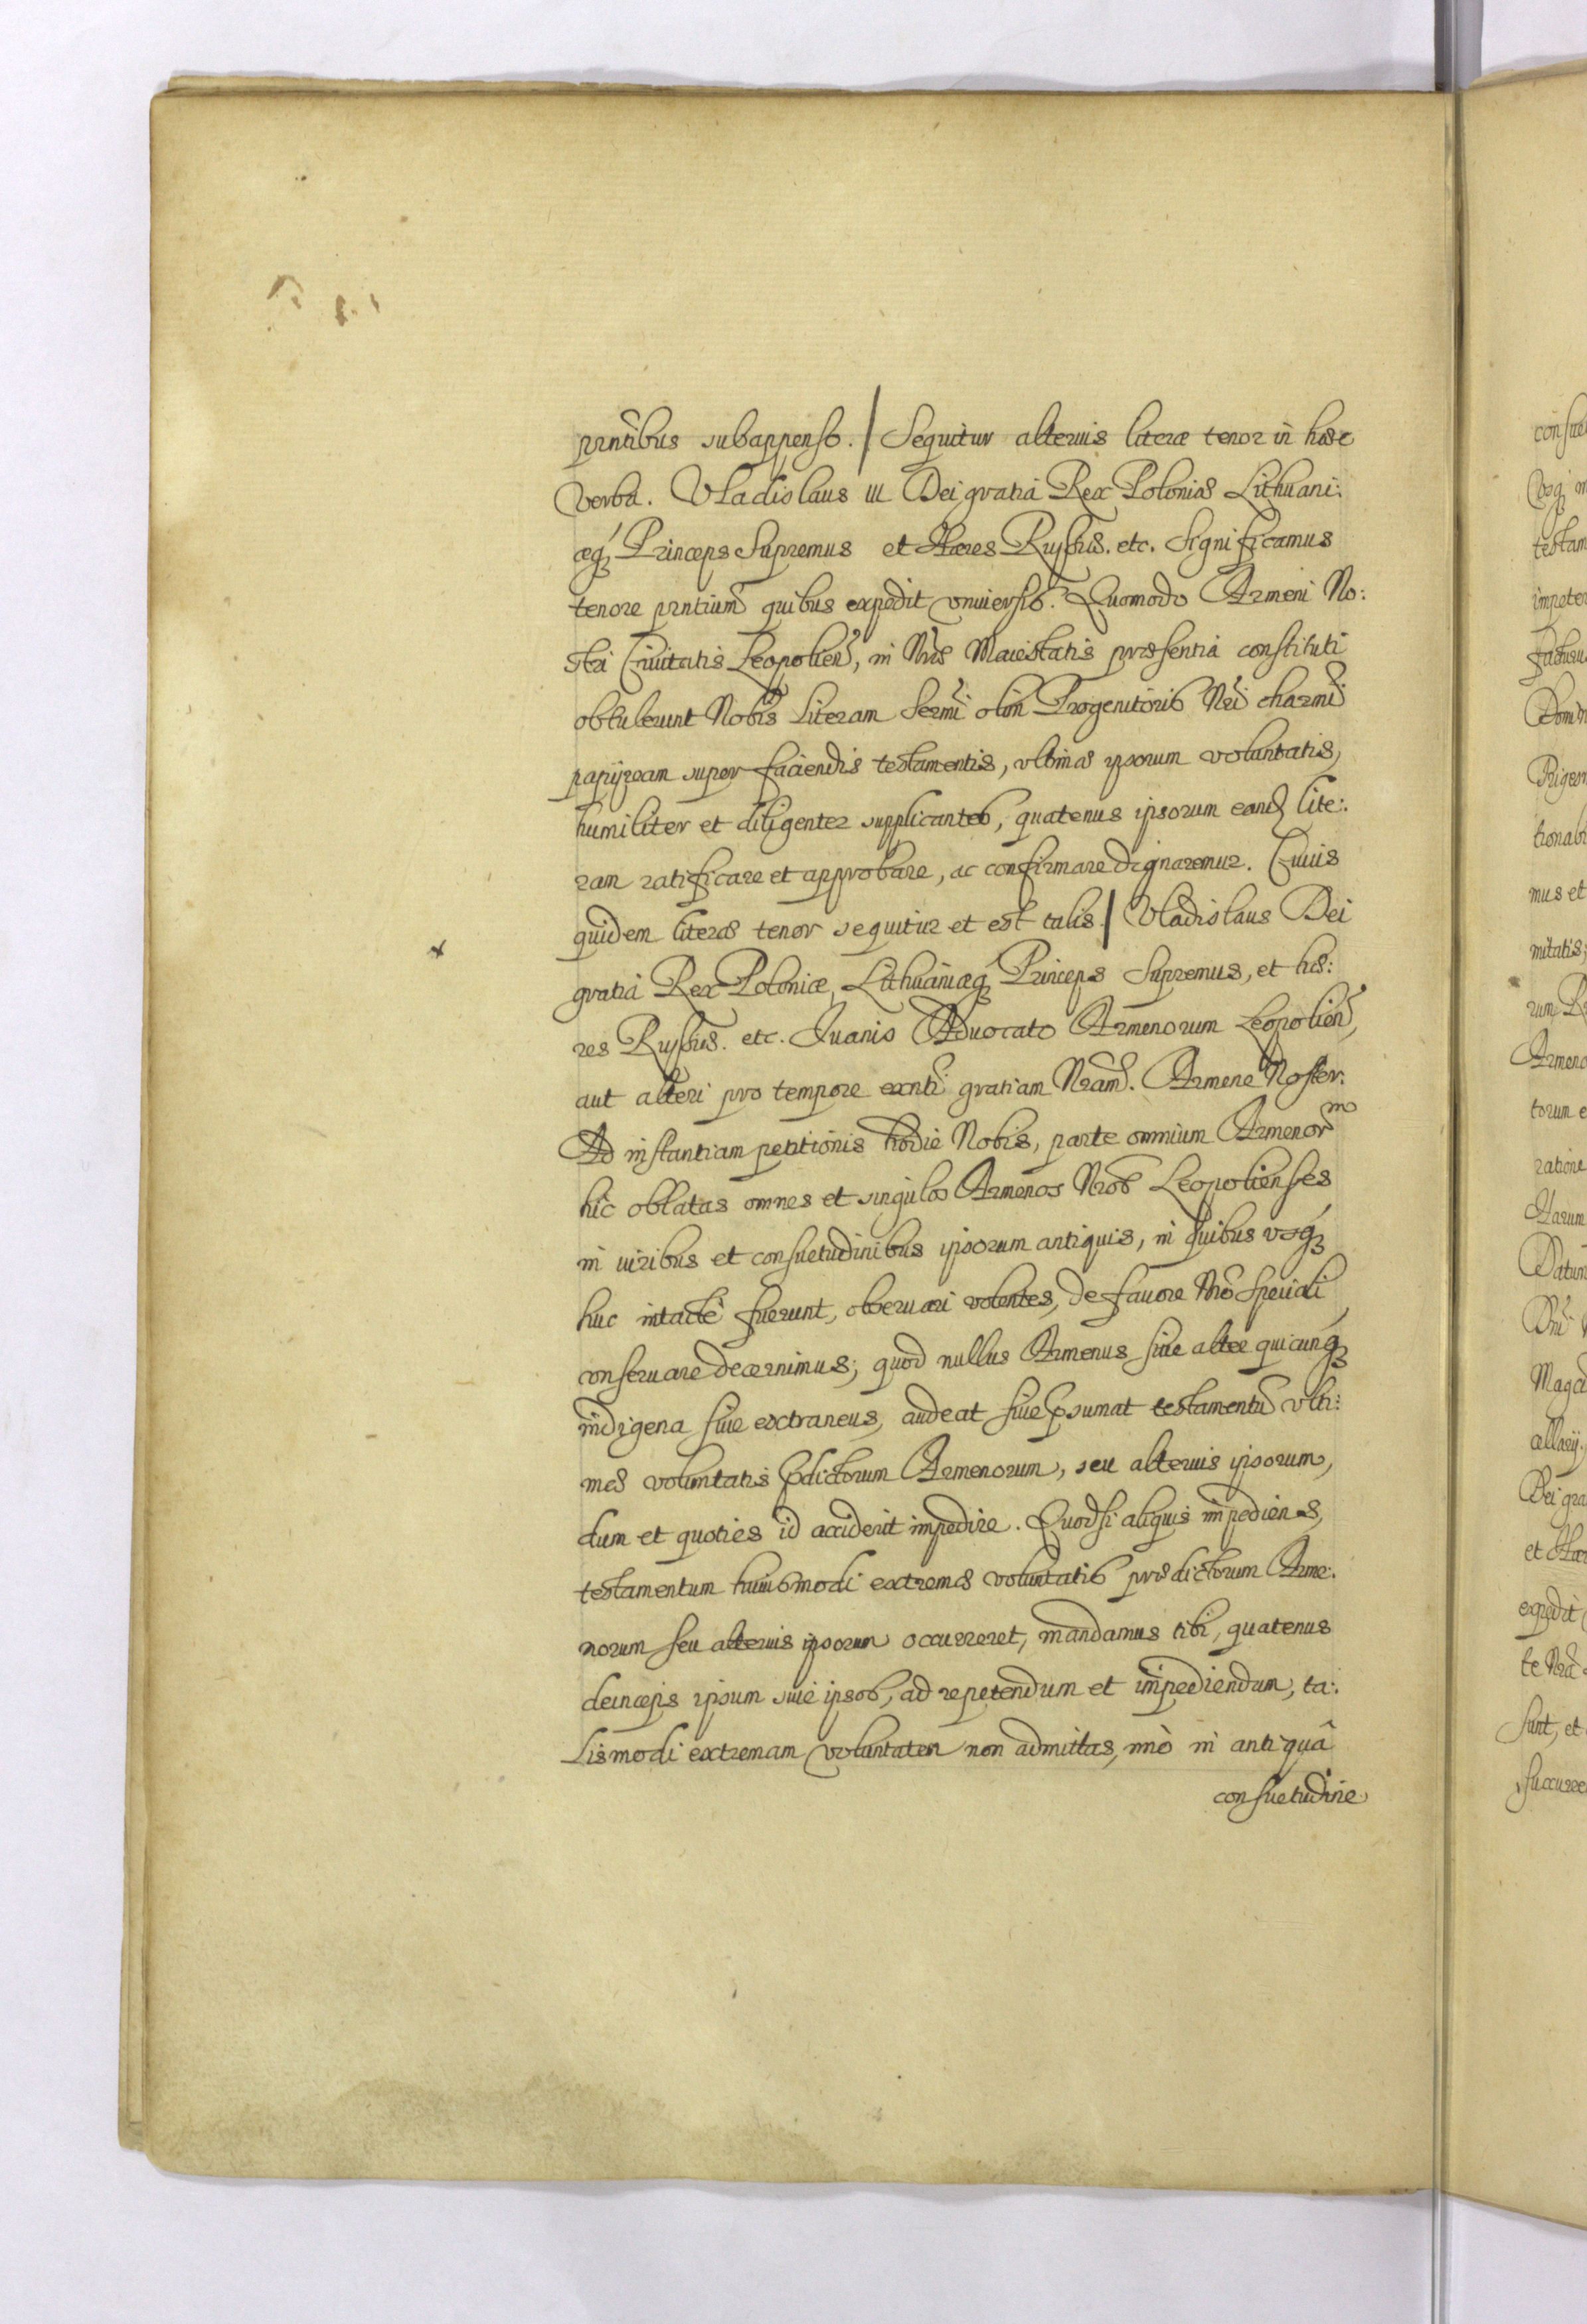 prntibus subappenso. / Sequitur alterius literæ tenor in hæc
verba. Vladislaus III Dei gratiâ Rex Poloniæ Lithuani:
æq́ Princeps Supremus et Hæres Russiæ. etc. Significamus
tenore prntium quibus expedit vniuersis. Quomodo Armeni No:
stri Ciuitatis Leopolien, in Nræ Maiestatis præsentia constituti
obtulerunt Nobis Literam Sermi olim Progenitoris Nri charmi
papijream super faciendis testamentis, vltimæ ipsorum voluntatis,
humiliter et diligenter supplicantes, quatenus ipsorum eand lite:
ram ratificare et approbare, ac confirmare dignaremur. Cuius
quidem literæ tenor sequitur et est talis. / Vladislaus Dei
gratiâ Rex Poloniæ, Lithuaniæq́ Princeps Supremus, et hæ:
res Russiæ. etc. Iuanis Aduocato Armenorum Leopolien,
aut alteri pro tempore exnti gratiam Nram. Armene Noster.
Ad instantiam petitionis hodie Nobis, parte omnium Armenorm
hic oblatas omnes et singulos Armenos Nros Leopolienses
in iuribus et consuetudinibus ipsorum antiquis, in quibus vsq́
huc intactè fuerunt, obseruari volentes, de fauore Nro Speciali
conseruare decernimus; quod nullus Armenus siue alter quicunq́
indigena siue extraneus, audeat siue psumat testamentu vlti:
mæ voluntatis pdictorum Armenorum, seu alterius ipsorum,
dum et quoties id acciderit impedire. Quodsi aliquis impediens,
testamentum huiusmodi extremæ voluntatis prædictorum Arme:
norum seu alterius ipsorum occurreret, mandamus tibi, quatenus
deinceps ipsum siue ipsos, ad repetendum et impediendum, ta:
lismodi extremam voluntatem non admittas, imò in antiquâ
consuetudine